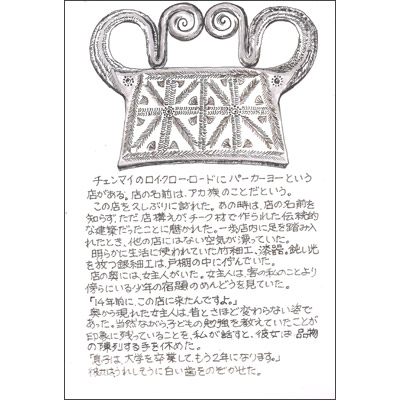 チェンマイのロイクロー・ロードにパーカーヨーという
店がある。店の名前は、アカ族のことだという。
この店を久しぶりに訪れた。あの時は、店の名前を
知らず、ただ店構えが、チーク材で作られた伝統的
な建築だったことに魅かれた。一歩店内に足を踏み
入れたとき、他の店にはない空気が漂っていた。
明らかに生活に使われていた竹細工、漆器。鈍い光
を放つ銀細工は、戸棚の中に佇んでいた。
店の奥には、女主人がいた。女主人は、客の私のことより
傍らにいる少年の宿題のめんどうを見ていた。
「14年前に、この店に来たんですよ。」
奥から現れた女主人は、昔とさほど変わらない姿で
あった。当然ながら子どもの勉強を教えていたことが
印象に残っていることを、私が話すと、彼女は品物
の陳列する手を休めた。
「息子は、大学を卒業して、もう2年になります。」
彼女はうれしそうに白い歯をのぞかせた。